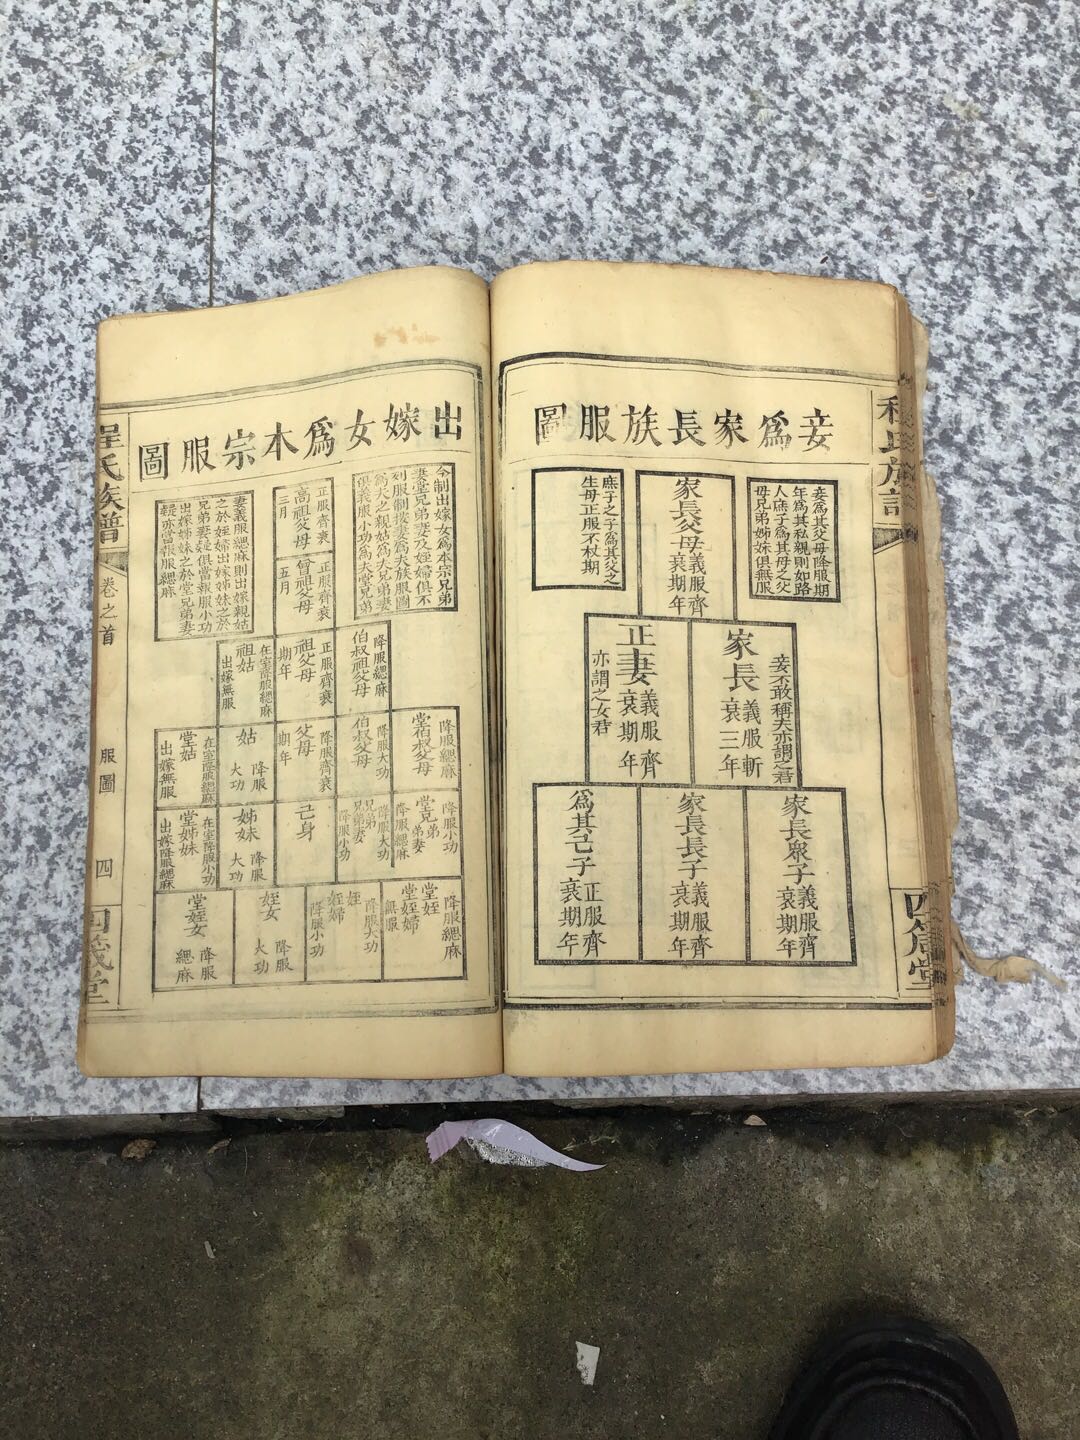 妾爲家長族服圖
妾爲其父母降服期
年爲其私親則如路
人庶子爲其母之父
母兄弟姊妹俱無服
家長父母義服齊衰期年
庶子之子爲其父之
生母正服不杖期
家長義服斬衰三年
妾不敢稱夫亦謂之君
正妻義服齊衰期年
亦謂之女君
家長衆子義服齊衰期年
家長長子義服齊衰期年
爲其己子正服齊衰期年
出嫁女爲本宗服圖
今制出嫁女爲本宗兄弟
妻堂兄弟妻及姪婦俱不
列服制按妻爲夫族服圖
爲夫之親姑爲夫兄弟妻
俱義服小功爲夫堂兄弟
正服齊衰五月
曾祖父母
正服齊衰三月
高祖父母
妻義服緦麻則出嫁親姑
之於姪婦出嫁姊妹之於
兄弟妻疑俱當報服小功
出嫁姊妹之於堂兄弟妻
疑亦當報服緦麻
降服緦麻
伯叔祖父母
正服齊衰期年
祖父母
在室降服緦麻
祖姑
出嫁無服
降服緦麻
堂伯叔父母
降服大功
伯叔父母
降服齊衰期年
父母
姑
降服大功
在室降服緦麻
堂姑
出嫁無服
降服小功
堂兄弟
弟妻
降服緦麻
降服大功
兄弟
兄弟妻
降服小功
己身
姊妹
降服大功
在室降服小功
堂姊妹
出嫁降服緦麻
降服緦麻
堂姪
堂姪婦
無服
降服大功
姪
姪婦
降服小功
姪女
降服大功
堂姪女
降服緦麻
程氏族譜
卷之首
服圖
四